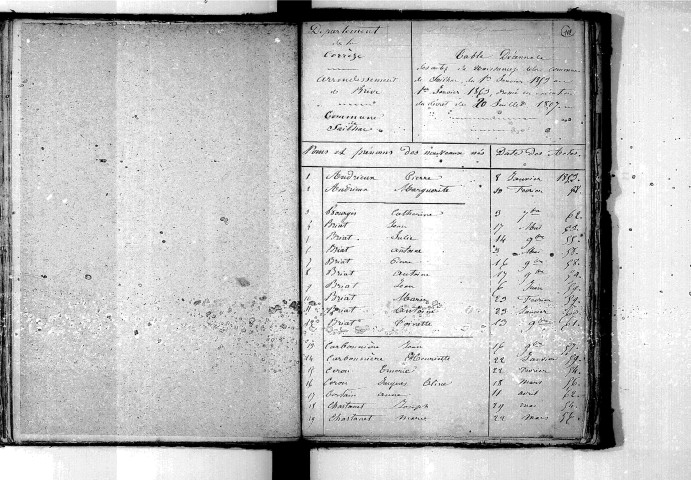 Département
de la
Corrèze
Arrondissement
de Brive
Commune
Table Décennale
des actes de naissances de la commune
de du 1er Janvier 1853 au
1er Janvier 1863, en
du décret du 20 Juillet 1807
Noms et prénoms des nouveaux nés Date des Actes
1 Andrieux Pierre 8 Janvier 1853
2 Andrieux Marguerite 10 Février
3 Bourges Catherine 3 7bre 62
4 Briat 17 Mai
5 Briat Julie 14 9bre 55
6 Briat Antoine 3 Mai
7 Briat 16 9bre 58
8 Briat Antoine 17 9bre
9 Briat Jean 6 Juin
10 Briat Marie 23 Février 59
11 Briat Antoine 23 Janvier
12 Briat Toinette 13 9bre 61
13 Carbonnière Jean 16 9bre 57
14 Carbonnière Henriette 22 Janvier 59
15 Ceron 22 Février 54
16 Ceron Jacques 18 Mars 56
17 Certain Anne 11 avril 62
18 Chastanet Joseph 29 mai 54
19 Chastanet Marie 22 Mars